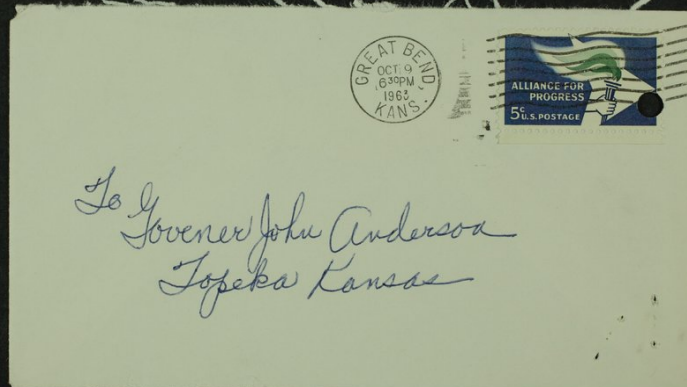 GREAT BEND
OCT 9
630PM
1963
KANS.
ALLIANCE FOR
PROGRESS
5c U.S. POSTAGE
To
Govener John Anderson
Topeka Kansas